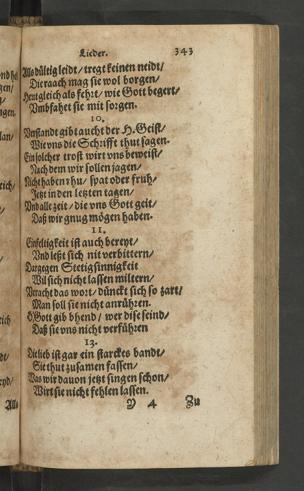 Lieder. 343
Als dültig leidt/ tregt keinen neidt/
Die raach mag sie wol borgen/
Heut gleich als fehrt/ wie Gott begert/
Vmbfahet sie mit sorgen.
10.
Verstandt gibt auch der H. Geist/
Wie vns die Schrifft thut sagen.
Ein solcher trost wirt vns beweist/
Nach dem wir sollen jagen/
Nicht haben rhu/ spat oder früh/
Jetzt in den letzten tagen/
Vnd alle zeit/ die vns Gott geit/
Daß wir gnug mögen haben.
11.
Einfeltigkeit ist auch bereyt/
Vnd leßt sich nit verbittern/
Dargegen Stetigsinnigkeit
Wil sich nicht lassen miltern/
Veracht das wort/ dünckt sich so zart/
Man soll sie nicht anrühren.
O Gott gib bhend/ wer dise seind/
Daß sie vns nicht verführen
13.
Die lieb ist gar ein starckes bandt/
Sie thut zusamen fassen/
Was wir dauon jetzt singen schon/
Wirt sie nicht fehlen lassen.
Y 4 Zu